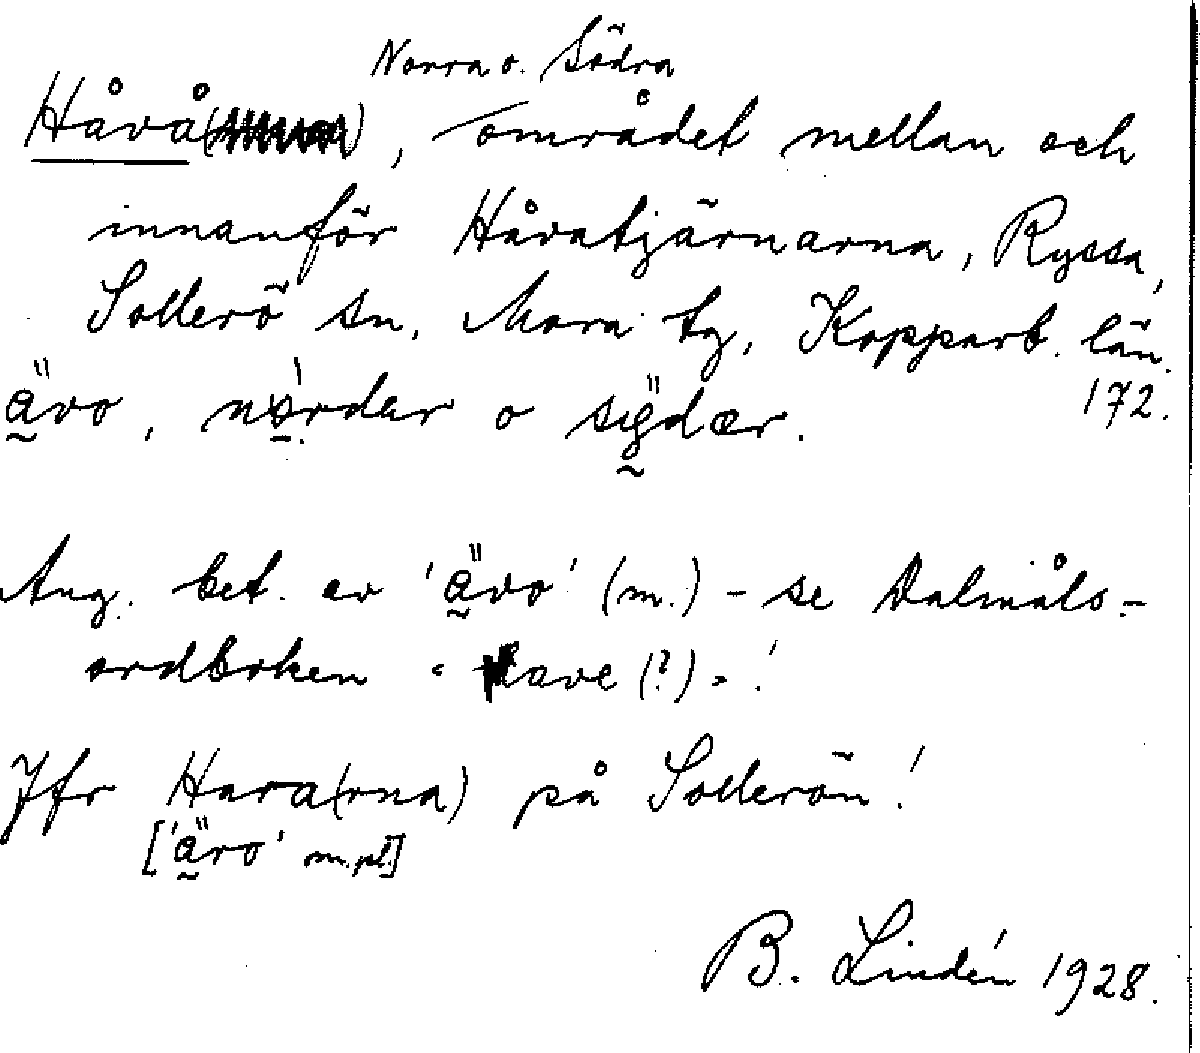 Norra o. Södra
Håvå( ), området mellan och
innanför Håvatjärnarna, Ryssa,
Sollerö sn, Mora tg, Kopparb. län.
172.
ävo, nordar o sÿdær.
Ang. bet. av 'ävo' (m.) - se Dalmåls-
ordboken " have (?) " !
Jfr Hara(rna) på Sollerön!
['äro' m.pl.]
B. Lindén 1928.